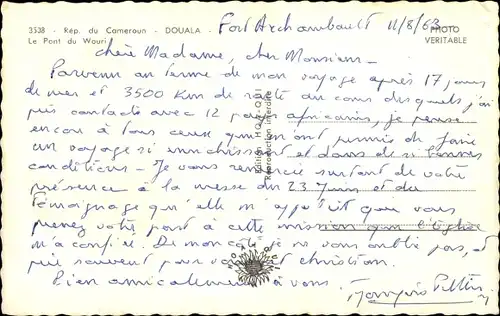 3538 - Rép. du Cameroun - DOUALA - Fort Archambault 11/8/63
Le Pont du Wouri
PHOTO
VERITABLE
chère Madame, cher Monsieur -
Parvenu au terme de mon voyage après 17 jours
de mer et 3500 Km de route au cours desquels j'ai
pris contacts avec 12 pays africains, je pense
encore à tous ceux qui m'ont permis de faire
un voyage si enrichissant et dans de si bonnes
conditions - Je vous remercie surtout de votre
présence à la messe du 23 Juin et du
témoignage qu'elle m'apportait que vous
prenez votre part à cette mission que l'Eglise
m'a confiée. De mon coté je ne vous oublie pas, et
prie souvent pour votre christian.
Bien amicalement à vous.
François
Edition HOA-QUI
Reproduction interdite
HOA QUI